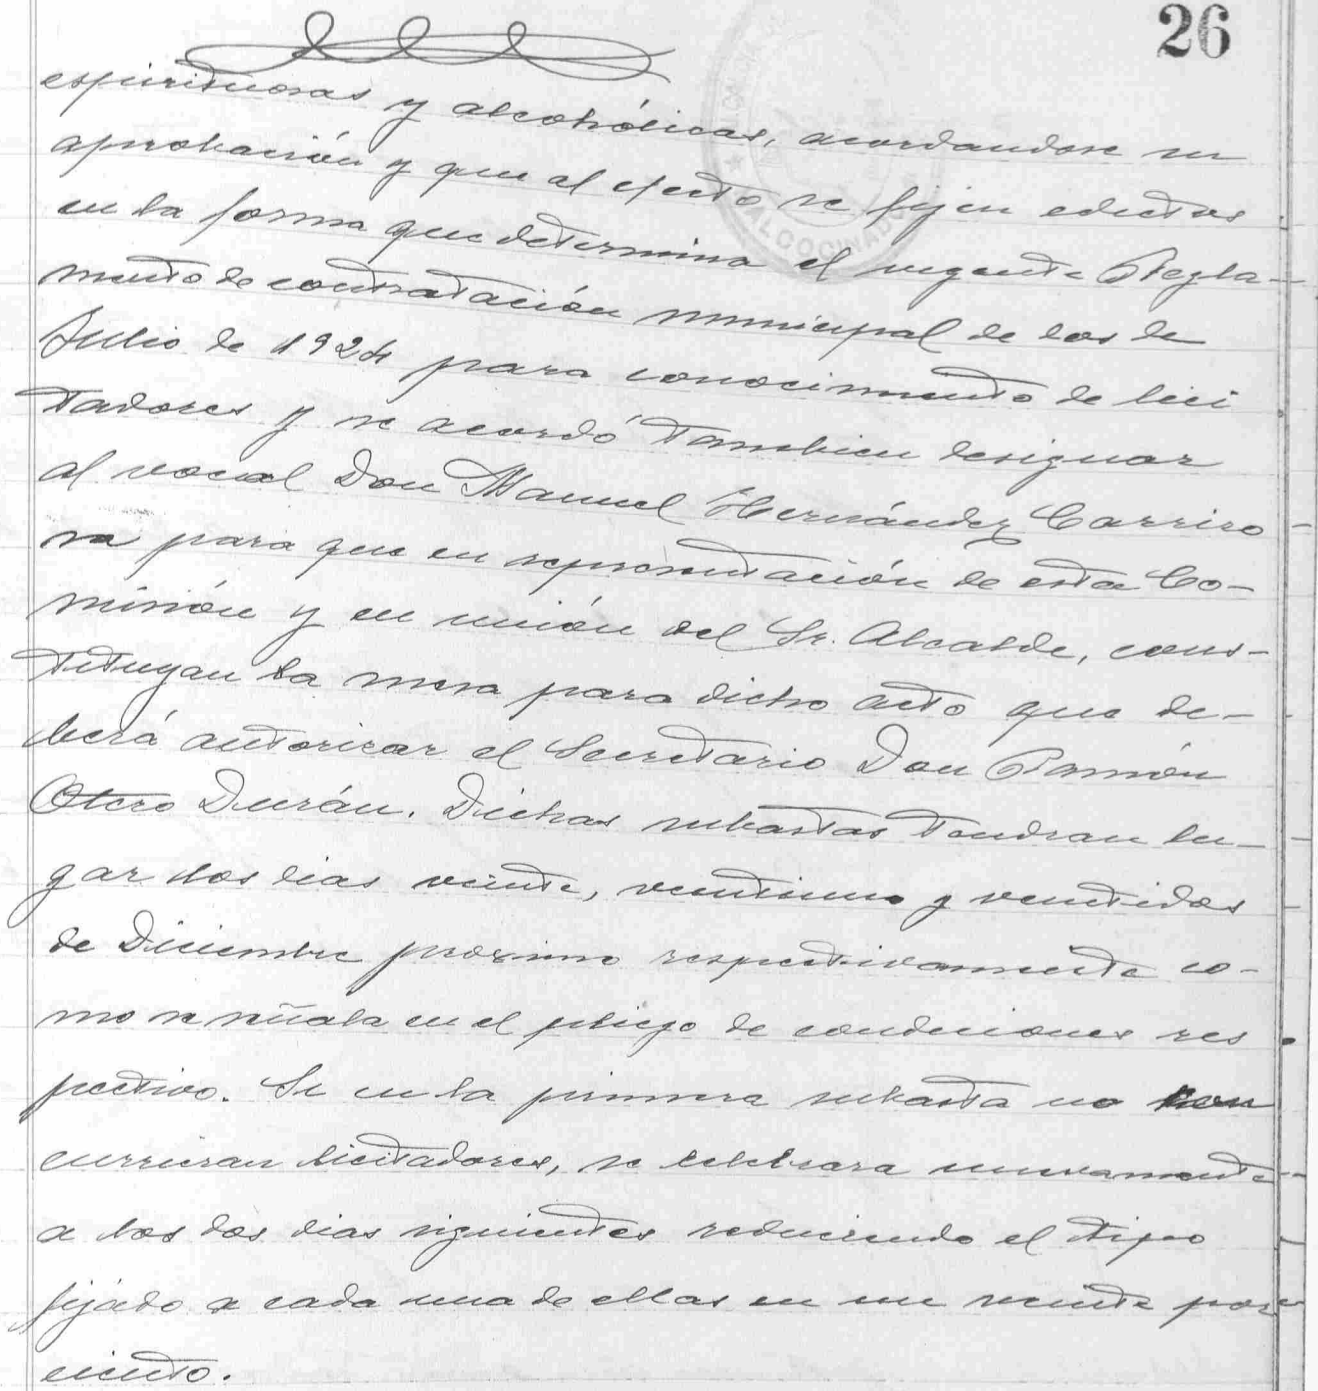 26
espirituosas y alcohólicas, acordandose su
aprobación y que al efecto se fijen edictos
en la forma que determina el vigente Regla-
mento de contratación municipal de dos de
Julio de 1924 para conocimiento de lici
tadores y se acordó tambien designar
al vocal Don Manuel Hernández Carriso-
sa para que en representación de esta Co-
misión y en unión del Sr. Alcalde, cons-
tituyan la mesa para dicho acto que de-
berá autorizar el Secretario Don Ramón
Otero Durán. Dichas subastas tendran lu-
gar los dias veinte, veintiuno y veintidos
de Diciembre proximo respectivamente co-
mo se señala en el pliego de condiciones res
pectivo. Si en la primera subasta no con
currieran licitadores, se celebrara nuevamente
a los dos dias siguientes reduciendo el tipo
fijado a cada una de ellas en un veinte por
ciento.